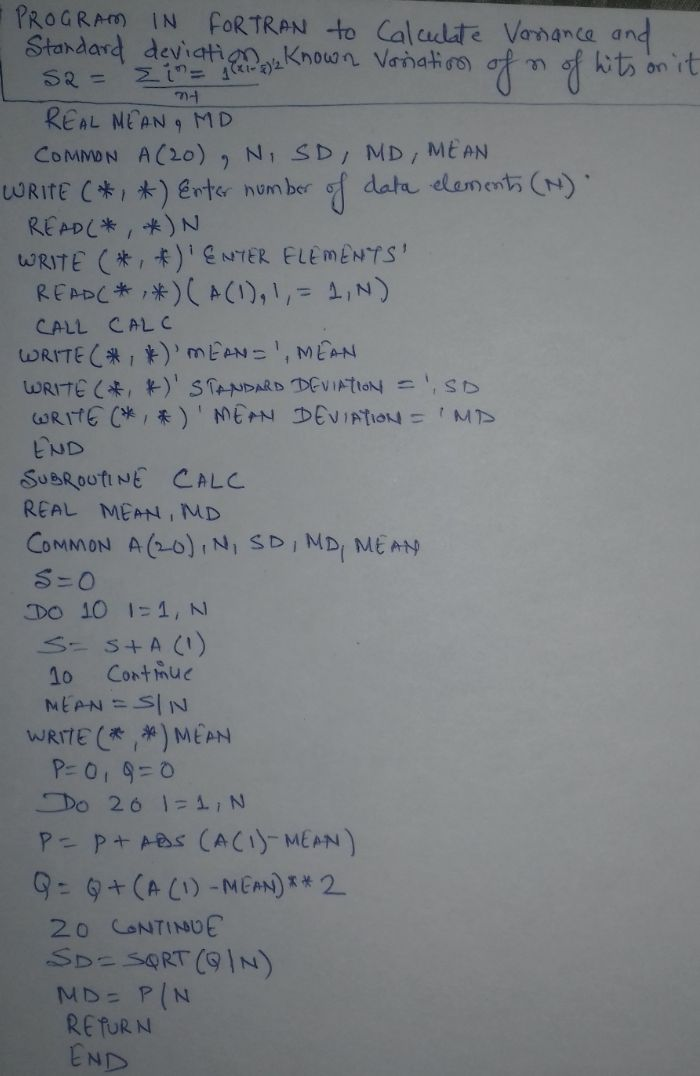 PROGRAM IN FORTRAN to Calculate Variance and
Standard deviation, Known Variation of n of hits on it
S2 = Σ i^n = 1^(x1-x̄)^2
n-1
REAL MEAN, MD
COMMON A(20), N, SD, MD, MEAN
WRITE (*, *) Enter number of data elements (N).
READ(*, *)N
WRITE (*, *)' ENTER ELEMENTS'
READ(*, *)( A(1), 1, = 1, N)
CALL CALC
WRITE(*, *)' MEAN=', MEAN
WRITE(*, *)' STANDARD DEVIATION = ', SD
WRITE (*, *)' MEAN DEVIATION = ' MD
END
SUBROUTINE CALC
REAL MEAN, MD
COMMON A(20), N, SD, MD, MEAN
S=0
DO 10 1=1, N
S= S+A (1)
10 Continue
MEAN = S/N
WRITE(*, *)MEAN
P=0, Q=0
Do 20 1=1, N
P= P+ ABS (A(1)-MEAN)
Q= Q+(A(1)-MEAN)**2
20 CONTINUE
SD=SQRT(Q/N)
MD= P/N
RETURN
END